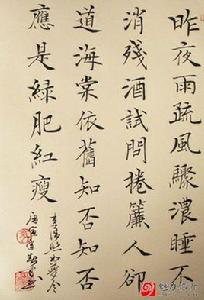 昨夜雨疏風驟濃睡不
消殘酒試問捲簾人卻
道海棠依舊知否知否
應是綠肥紅瘦
李清照如夢令
庚寅